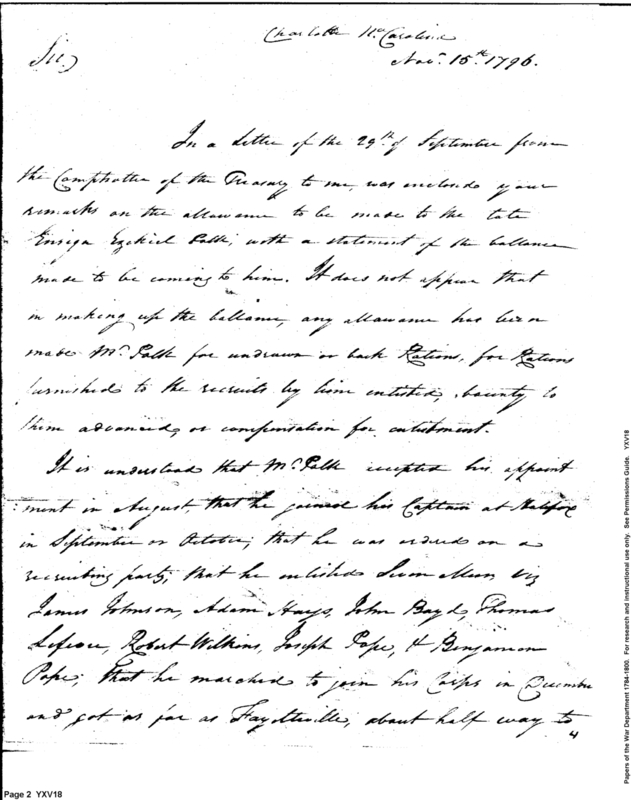 Charlotte No. Carolina
Novr. 15th. 1796.
Sir.
In a Letter of the 29th. of September from
the Comptroller of the Treasury to me, was enclosed your
remarks on the allowance to be made to the late
Ensign Ezekiel Polk; with a statement of the ballance
made to be coming to him. It does not appear that
in making up the ballance, any allowance has been
made Mr. Polk for undrawn or back Rations, for Rations
furnished to the recruits by him enlisted, bounty to
them advanced, or compensation for enlistment.
It is understood that Mr. Polk accepted his appoint
ment in August, that he joined his Captain at Halifax
in September or October; that he was ordered on a
recruiting party; that he enlisted Seven Men Viz
James Johnson, Adam Hays, John Boyd, Thomas
Robert Wilkins, Joseph Pope, & Benjamin
Pope; That he marched to join his Corps in December
and got as far as Fayetteville, about half way to
4
Page 2 YXV18
Papers of the War Department 1784-1800. For research and instructional use only. See Permissions Guide. YXV18